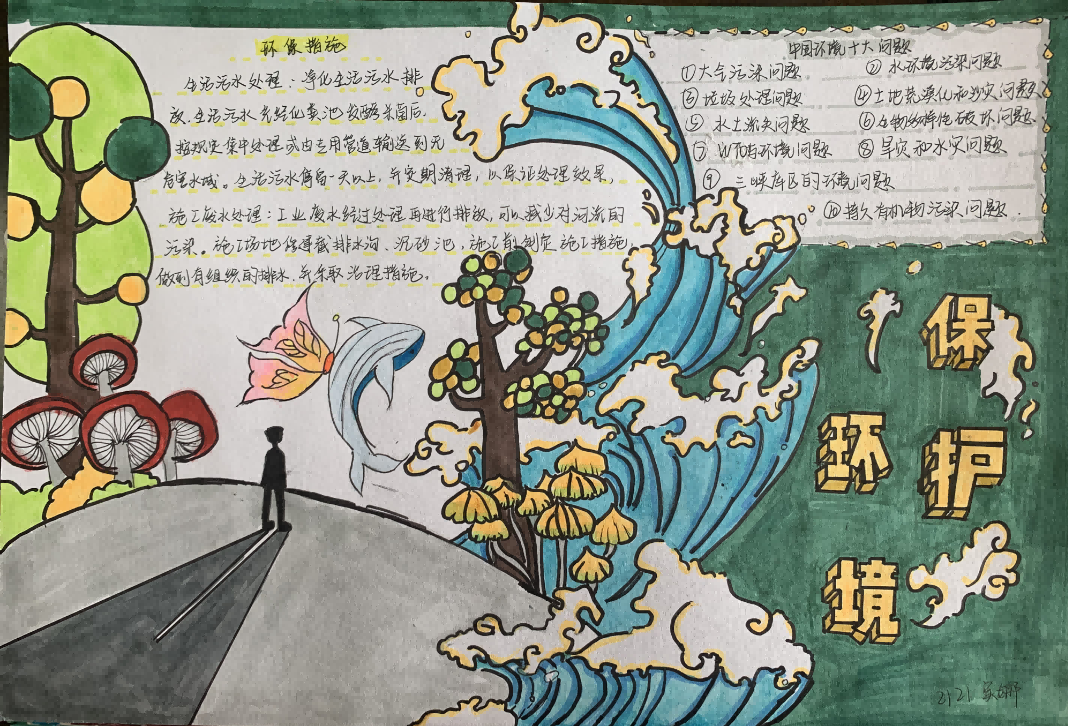 环保措施
生活污水处理：净化生活污水排
放、生活污水先经化粪池发酵杀菌后,
按规定集中处理或由专用管道输送到无
危害水域。生活污水停留一天以上，并定期清理，以保证处理效果，
施工废水处理：工业废水经过处理再进行排放，可以减少对河流的
污染。施工场地修建截排水沟、沉砂池，施工前制定施工措施，
做到有组织的排水，并采取治理措施。
中国环境十大问题
①大气污染问题 ②水环境污染问题
③垃圾处理问题 ④土地荒漠化和沙灾问题
⑤水土流失问题 ⑥生物多样性破坏问题
⑦WTO与环境问题 ⑧旱灾和水灾问题
⑨三峡库区的环境问题
⑩持久有机物污染问题.
保护
环境
2121